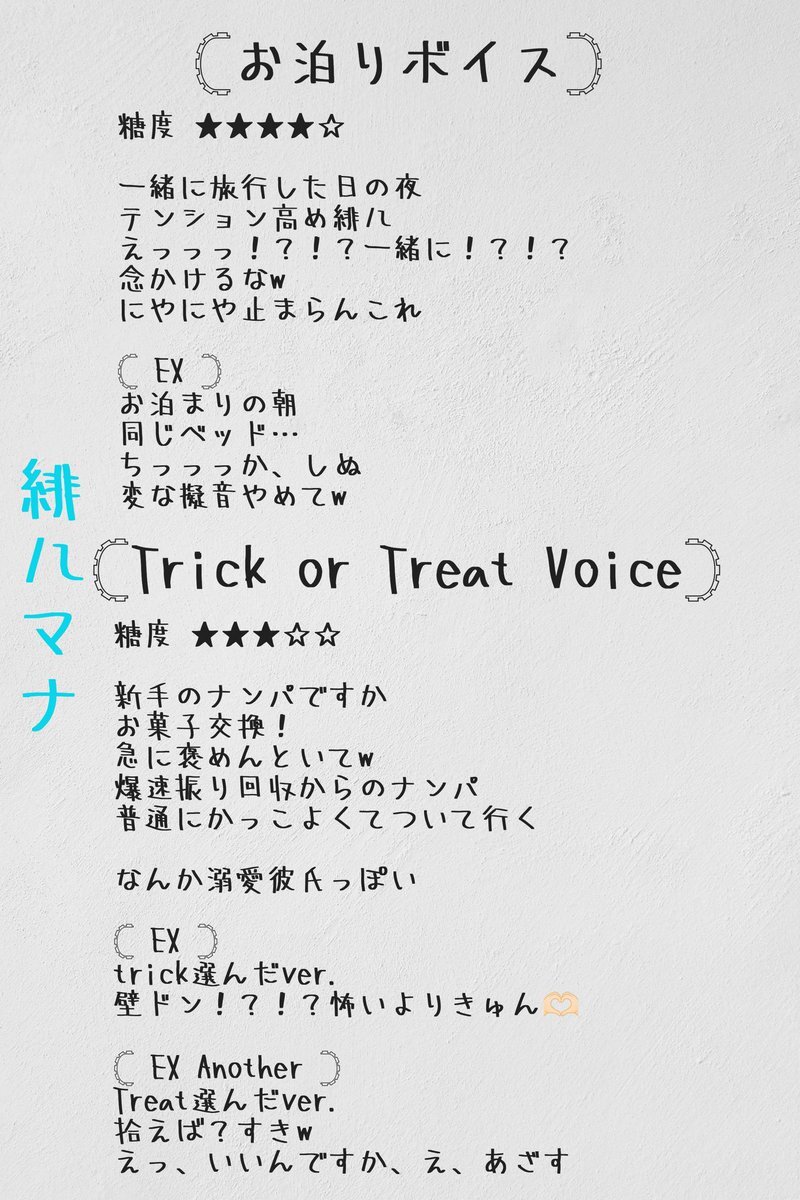 お泊りボイス
糖度 ★★★★☆
一緒に旅行した日の夜
テンション高め緋八
えっっっ！？！？一緒に！？！？
念かけるなw
にやにや止まらんこれ
EX
お泊まりの朝
同じベッド…
ちっっっか、しぬ
変な擬音やめてw
緋八マナ
Trick or Treat Voice
糖度 ★★★☆☆
新手のナンパですか
お菓子交換！
急に褒めんといてw
爆速振り回収からのナンパ
普通にかっこよくてついて行く
なんか溺愛彼氏っぽい
EX
trick選んだver.
壁ドン！？！？怖いよりきゅん🫶🏻
EX Another
Treat選んだver.
拾えば？すきw
えっ、いいんですか、え、あざす